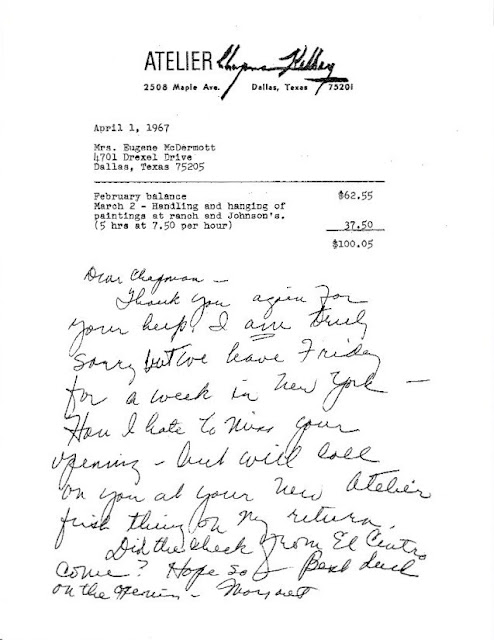 ATELIER Chapman Kelley
2508 Maple Ave. Dallas, Texas 75201
April 1, 1967
Mrs. Eugene McDermott
4701 Drexel Drive
Dallas, Texas 75205
February balance $62.55
March 2 - Handling and hanging of
paintings at ranch and Johnson's.
(5 hrs at 7.50 per hour) 37.50
$100.05
Dear Chapman —
Thank you again for
your help! I am truly
sorry but we leave Friday
for a week in New York —
How I hate to miss your
opening — but will call
on you at your new Atelier
first thing on my return.
Did the check from El Centro
come? Hope so — Best luck
on the opening — Margaret